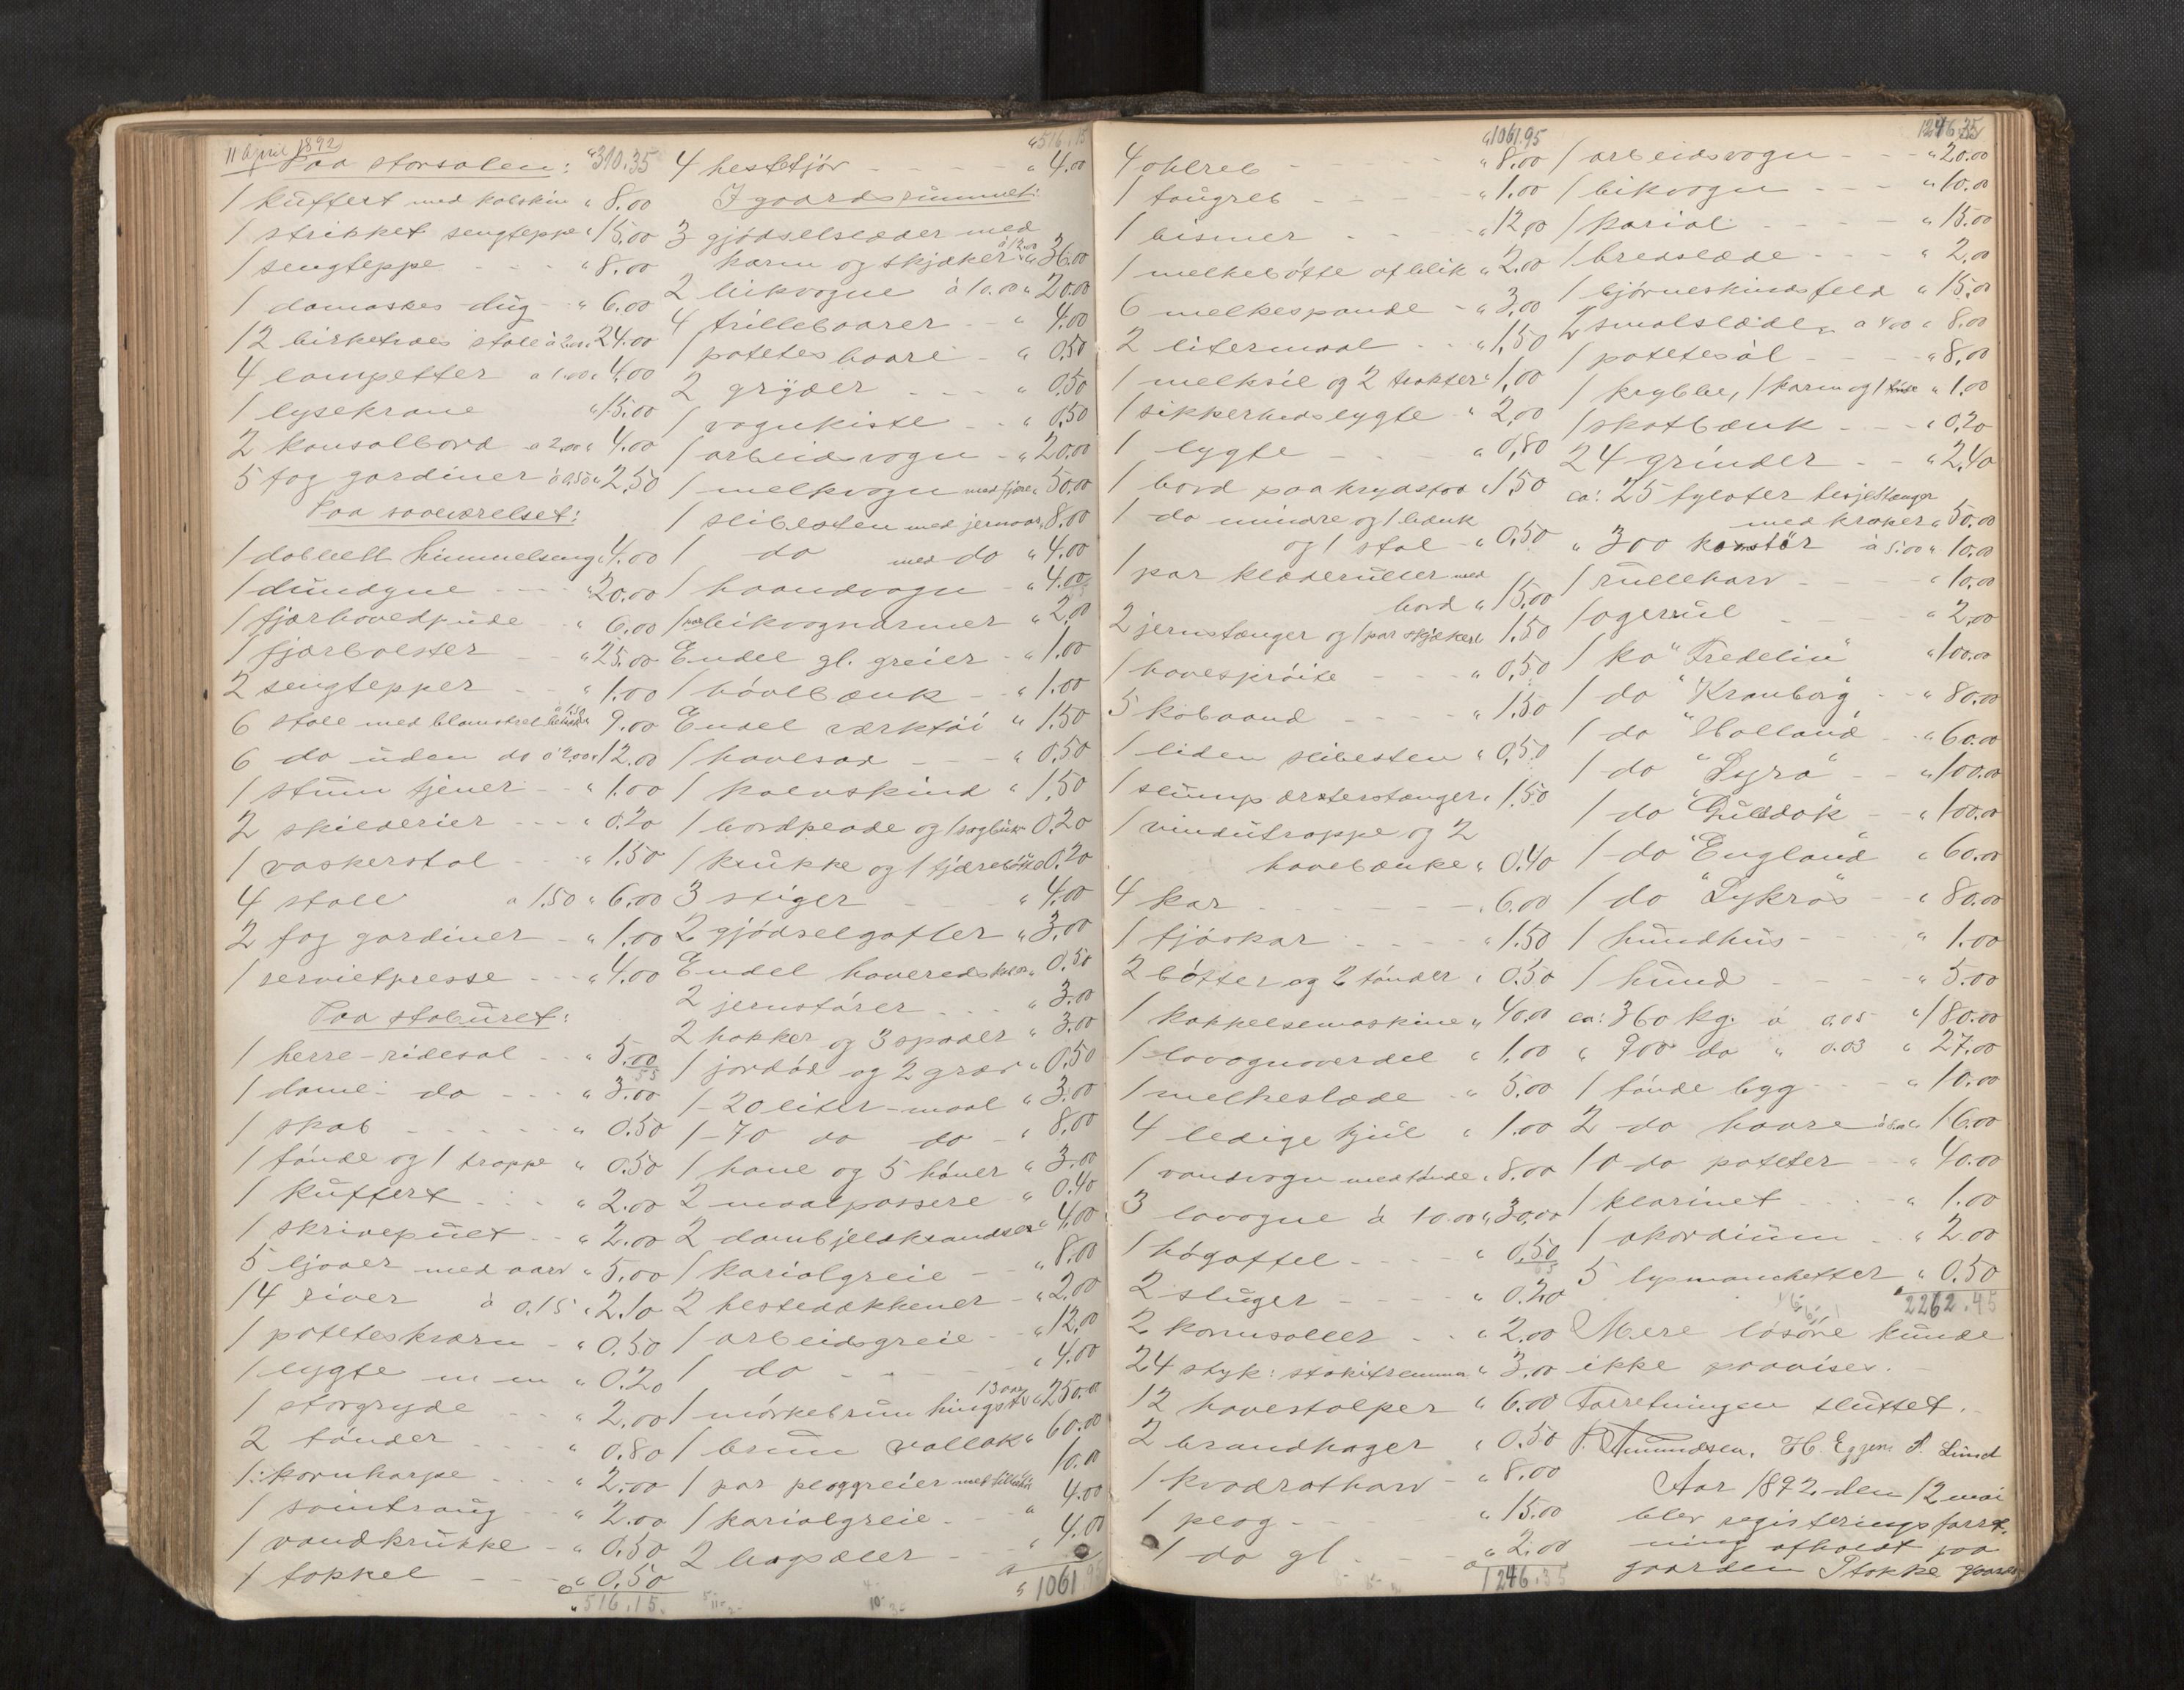 11 April 1892
Paa storsalen: " 310.35
1 kuffert med kobskin " 8.00
1 strikket sengteppe " 15.00
1 sengteppe - - - " 8.00
1 damaskes dug - " 6.00
12 birketræs stole à 2.00 " 24.00
4 lampetter à 1.00 " 4.00
1 lysekrone " 15.00
2 konsolbord à 2.00 " 4.00
5 fag gardiner à 0.50 " 2.50
Paa soveværelset:
1 dobbelt himmelseng " 4.00
1 dundyne - - - " 20.00
1 fjærhovedpude " 6.00
1 fjærbolster - " 25.00
2 sengtepper - - " 1.00
6 stole med blomstret betræk à 1.50 " 9.00
6 do uden do à 2.00 " 12.00
1 stum tjener - - " 1.00
2 skilderier - - - " 0.20
1 vaskerstol - - " 1.50
4 stole à 1.50 " 6.00
2 fag gardiner - " 1.00
1 servietpresse - - - " 4.00
Paa staburet:
1 herre-ridesal - - " 5.00
1 dame- do - - - " 3.00
1 skab - - - - - " 0.50
1 tønde og 1 trappe " 0.50
1 kuffert - - - " 2.00
1 skrivepult - - " 2.00
5 ljaaer med aarv " 5.00
14 river à 0.15 " 2.10
1 poteteskværn - " 0.50
1 lygte m m " 0.20
1 storgryde - - " 2.00
2 tønder - - - " 0.80
1 kornharpe - - - " 2.00
1 svintraug - - " 2.00
1 vandkrukke - " 0.50
1 takkel - - - " 0.50
" 516.15
" 516.15
4 hesttjör - - - - - " 4.00
I gaardsrummet:
3 gjødselslæder med
karm og skjæker à 12.00 " 36.00
2 bikvogne à 10.00 " 20.00
4 trillebaarer - - " 4.00
1 potetesbaare - - " 0.50
2 gryder - - - " 0.50
1 vognkiste - - " 0.50
1 arbeidsvogn - " 20.00
1 melkvogn med fjære " 50.00
1 slibesten med jernaar " 8.00
1 do med do " 4.00
1 haandvogn - " 4.00
1 par bikvognarmer " 2.00
Endel gl. greier - " 1.00
1 hövlbænk - - " 1.00
Endel værktöi " 1.50
1 havesad - - - " 0.50
1 kalvskind " 1.50
1 bordplade og 1 sagbuk " 0.20
1 krukke og 1 tjærebötte " 0.20
3 stiger - - - " 4.00
2 gjødselgafler " 3.00
Endel haveredskaber " 0.50
2 jernstörer - - - " 3.00
2 hakker og 3 spader " 3.00
1 jordöd og 2 græv " 0.50
1-20 liter-maal " 3.00
1-70 do do - " 8.00
1 hane og 5 höner " 3.00
2 maalpassere " 0.40
2 dombjeldkrandser " 4.00
1 karialgreie - " 8.00
2 hestedækkener - " 2.00
1 arbeidsgreie - - " 12.00
1 do - - - - " 4.00
1 mörkebrun hingst 13 aar " 250.00
1 brun vallak " 60.00
1 par ploggreier med tilbehör 10.00
1 karialgreie - - " 4.00
2 bogsæler - - - " 4.00
" 1061.95
" 1061.95
4 ohlreb - - - - - " 8.00
1 taugreb - - - - " 1.00
1 bismer - - - " 12.00
1 melkebötte af blik " 2.00
6 melkespande - " 3.00
2 litermaal - - - " 1.50
1 melksil og 2 trakter " 1.00
1 sikkerhedslygte " 2.00
1 lygte - - - - " 0.80
1 bord paa krydsfod " 1.50
1 do mindre og 1 bænk
og 1 stol - " 0.50
1 par klæderuller med
bord " 15.00
2 jernstænger og 1 par skjæker " 1.50
1 havesprøite - - - " 0.50
5 kobaand - - - - " 1.50
1 liden slibesten " 0.50
1 slump ærterstænger " 1.50
1 vindutrappe og 2
havebænke " 0.40
4 kar - - - - - " 6.00
1 fjöskar - - - - " 1.50
2 bötter og 2 tönder " 0.50
1 kappelsemaskine " 40.00
1 lavognoverdel " 1.00
1 melkeslæde - " 5.00
4 ledige hjul " 1.00
1 vandvogn med tönde " 8.00
3 lavogne à 10.00 " 30.00
1 högaffel - - - " 0.50
2 sluger - - - " 0.20
2 kornsolder - - " 2.00
24 styk: stakitremma " 3.00
12 havestolper " 6.00
2 brandhager " 0.50
1 kvadratharv - " 8.00
1 plog - - - " 15.00
1 do gl. - - - " 2.00
1246.35
1246.35
1 arbeidsvogn - - - " 20.00
1 bikvogn - - - " 10.00
1 karial - - - - " 15.00
1 bredslæde - - - " 2.00
1 björneskindsfeld " 15.00
2 smalslæder à 4.00 " 8.00
1 potetesàl - - - " 8.00
1 krybbe, 1 karm og 1 " 1.00
1 skotbænk - - - " 0.20
24 grinder - - " 2.40
ca: 25 tylvter hesjestænger
med kraker " 50.00
" 300 kornstör à 5.00 " 10.00
1 rulleharv - - - " 10.00
1 agerrul " 2.00
1 ko "Fredelin" " 100.00
1 do "Kranborg" - " 80.00
1 do "Holland" - " 60.00
1 do "Dyra" - - " 100.00
1 do "Guldok" - " 100.00
1 do "England" " 60.00
1 do "Lykros" - " 80.00
1 hundhus - - " 1.00
1 hund - - - - " 5.00
ca: 360 kg. à 0.05 " 180.00
" 900 do " 0.03 " 27.00
1 tönde bygg - - " 10.00
2 do havre à 8.00 " 16.00
10 do poteter - - " 40.00
1 klarinet - - - " 1.00
1 akordium - - " 2.00
5 lysmanchetter " 0.50
2262.45
Mere lösöre kunde
ikke paavises.
Forretningen sluttet.
P. Amundsen. H. Eggen. P. Lund
Aar 1892 den 12 mai
blev registeringsforret-
ning afholdt paa
gaarden Stokke